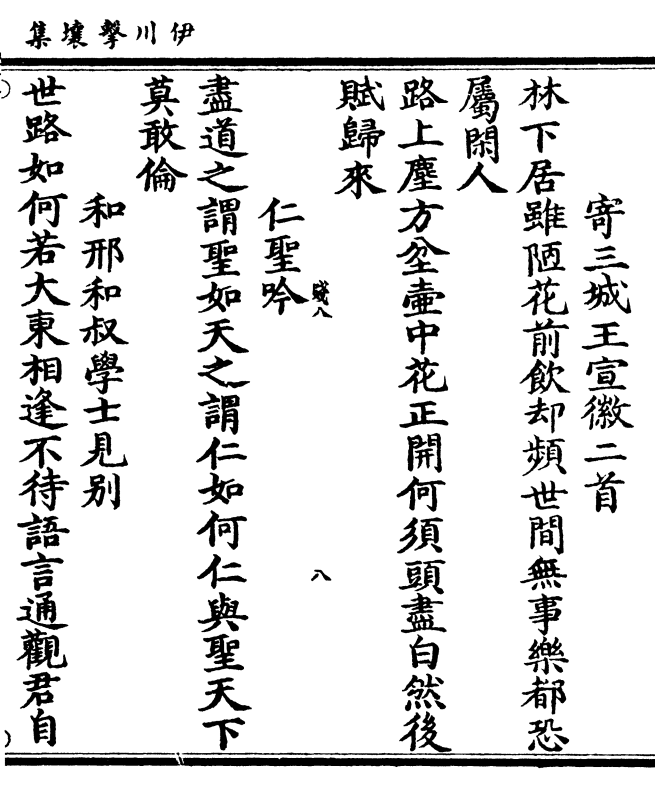 伊川擊壤集
寄三城王宣徽二首
林下居雖陋花前飲却頻世間無事樂都恐
屬閑人
路上塵方坌壷中花正開何須頭盡白然後
賦歸來
八
仁聖吟
盡道之謂聖如天之謂仁如何仁與聖天下
莫敢倫
和邢和叔學士見别
世路如何若大東相逢不待語言通觀君自